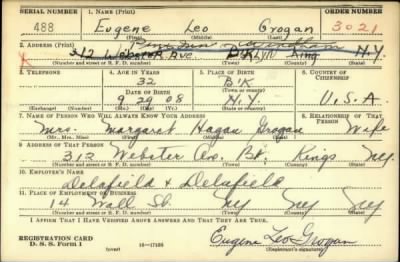 SERIAL NUMBER
1. NAME (Print)
ORDER NUMBER
488
Eugene Leo Grogan
3021
(First) (Middle) (Last)
2. ADDRESS (Print)
312 Webster Ave. B'KLYN King N.Y.
(Number and street or R. F. D. number) (Town) (County) (State)
3. TELEPHONE
4. AGE IN YEARS
5. PLACE OF BIRTH
6. COUNTRY OF CITIZENSHIP
32
B'K
DATE OF BIRTH
9 29 08
N.Y.
U.S.A
(Exchange) (Number) (Mo.) (Day) (Yr.) (State or country)
7. NAME OF PERSON WHO WILL ALWAYS KNOW YOUR ADDRESS
8. RELATIONSHIP OF THAT PERSON
Mrs. Margaret Hagan Grogan Wife
(Mr., Mrs., Miss) (First) (Middle) (Last)
9. ADDRESS OF THAT PERSON
312 Webster Av. Bk. Kings NY.
(Number and street or R. F. D. number) (Town) (County) (State)
10. EMPLOYER'S NAME
Delafield & Delafield
11. PLACE OF EMPLOYMENT OR BUSINESS
14 Wall St. NY NY NY
(Number and street or R. F. D. number) (Town) (County) (State)
I AFFIRM THAT I HAVE VERIFIED ABOVE ANSWERS AND THAT THEY ARE TRUE.
REGISTRATION CARD
D. S. S. Form 1
(over)
16—17105
Eugene Leo Grogan
(Registrant's signature)